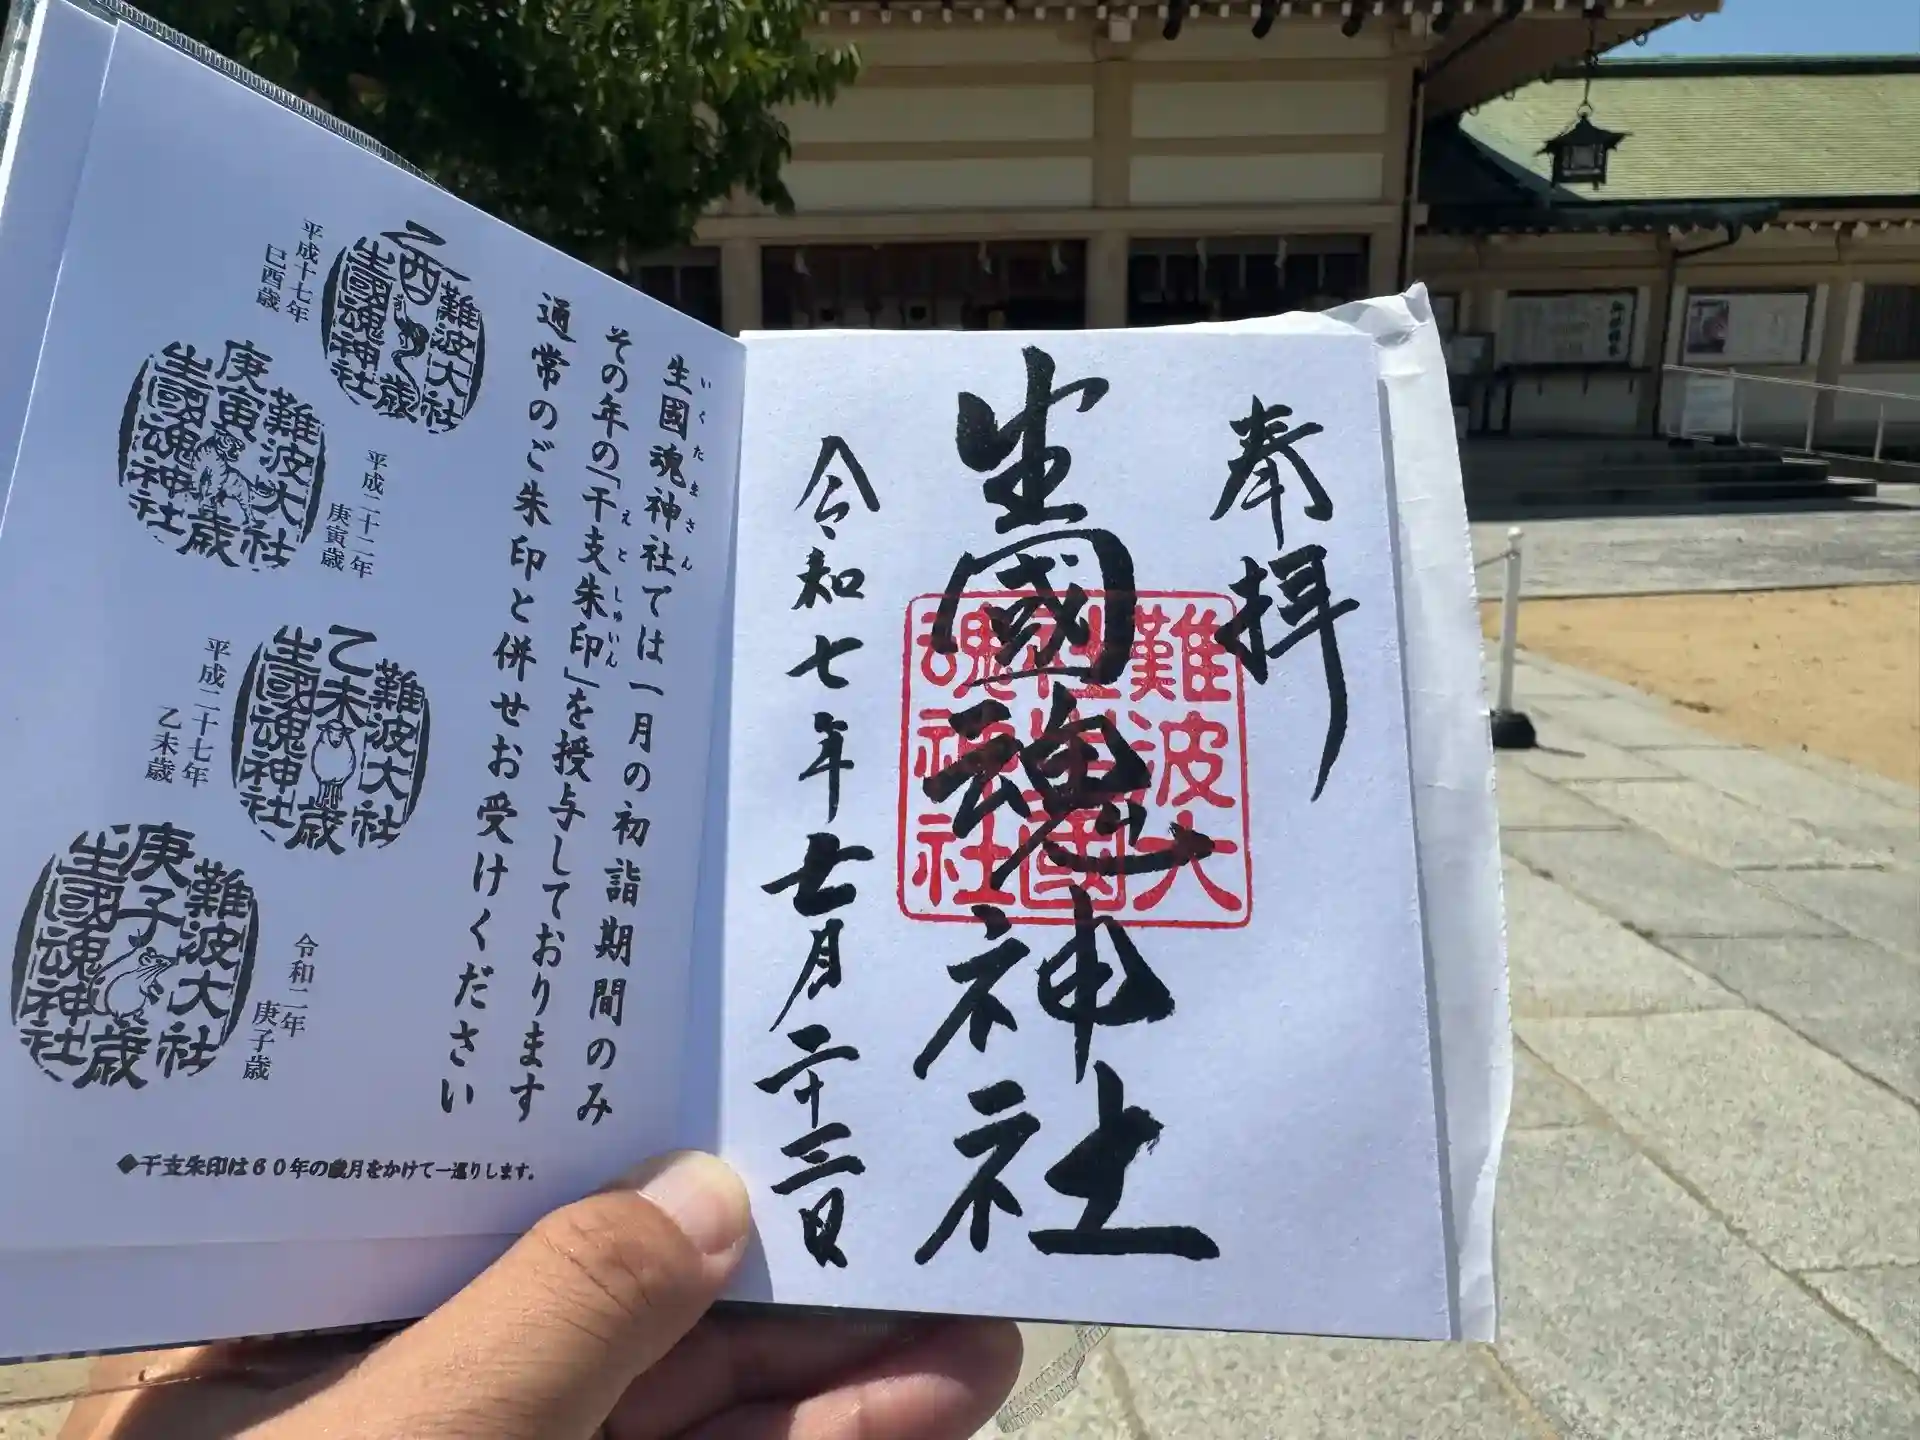 奉拝
生國魂神社
難波大
社生國
魂神社
令和七年七月二十三日
生國魂神社では一月の初詣期間のみ
いくたまさん
その年の「干支朱印」を授与しております
えとしゅいん
通常のご朱印と併せお受けください
乙酉歳
難波大社
生國魂神社
平成十七年
巳酉歳
庚寅歳
難波大社
生國魂神社
平成二十二年
庚寅歳
乙未歳
難波大社
生國魂神社
平成二十七年
乙未歳
庚子歳
難波大社
生國魂神社
令和二年
庚子歳
◆干支朱印は60年の歳月をかけて一巡りします。